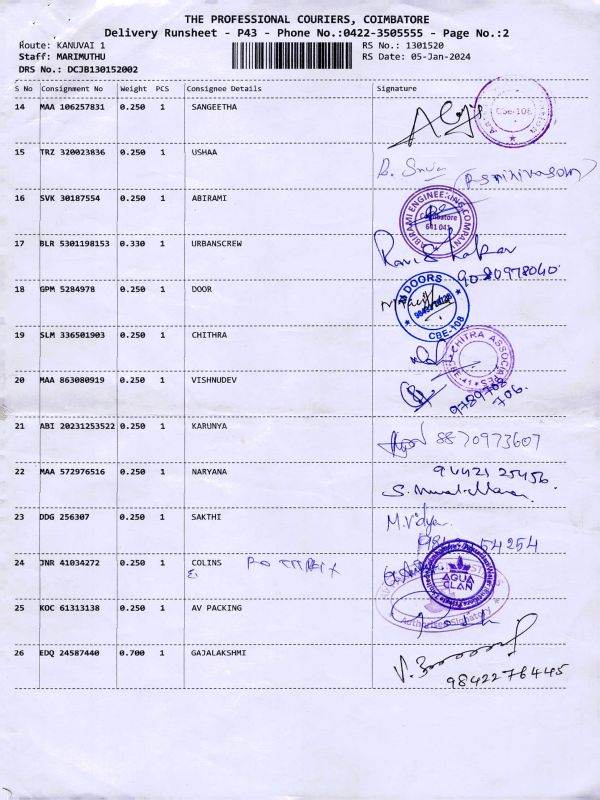 THE PROFESSIONAL COURIERS, COIMBATORE
Delivery Runsheet - P43 - Phone No.:0422-3505555 - Page No.:2
Route: KANUVAI 1 RS No.: 1301520
Staff: MARIMUTHU RS Date: 05-Jan-2024
DRS No.: DCJB130152002
S No Consignment No Weight PCS Consignee Details Signature
14 MAA 106257831 0.250 1 SANGEETHA
CBE-108
15 TRZ 320023836 0.250 1 USHAA
16 SVK 30187554 0.250 1 ABIRAMI
ABIRAMI ENGINEERING COMPANY
Coimbatore
641 041
17 BLR 5301198153 0.330 1 URBANSCREW
9080978040
18 GPM 5284978 0.250 1 DOOR
DOORS
CBE-108
19 SLM 336501903 0.250 1 CHITHRA
CHITRA ASSOCIATES
20 MAA 863080919 0.250 1 VISHNUDEV
9789708
706
21 ABI 20231253522 0.250 1 KARUNYA
8870973607
22 MAA 572976516 0.250 1 NARYANA
94421 25456
23 DDG 256307 0.250 1 SAKTHI
M. Vidya
54254
24 JNR 41034272 0.250 1 COLINS
AQUA
CLAN
25 KOC 61313138 0.250 1 AV PACKING
Authorised Signatory
26 EDQ 24587440 0.700 1 GAJALAKSHMI
9842276445